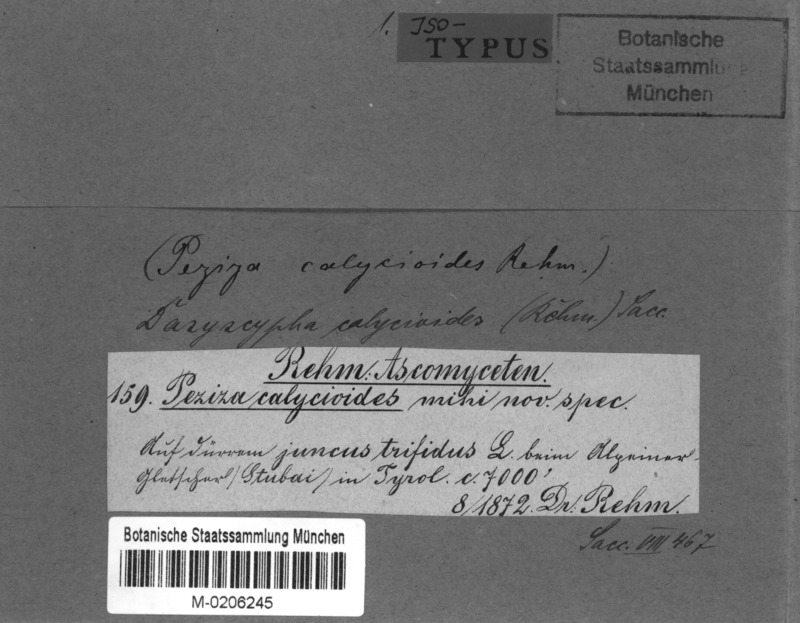 1. Iso-
TYPUS
Botanische
Staatssammlung
München
(Peziza calycioides Rehm.)
Dasyscypha calycioides (Rehm.) Sacc.
Rehm: Ascomyceten.
159. Peziza calycioides mihi nov. spec.
Auf dürrem juncus trifidus L. beim Alpeiner-
gletscher (Stubai) in Tyrol. c. 7000'
8/1872. Dr. Rehm.
Sacc. VIII 467
Botanische Staatssammlung München
M-0206245